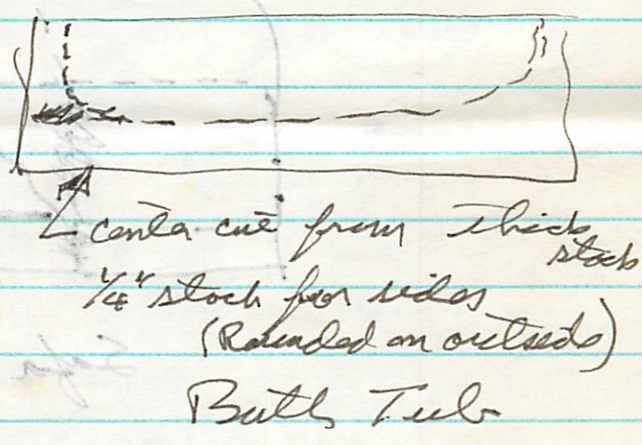 center cut from thick
stock
1/4" stock for sides
(Rounded on outside)
Bath Tub